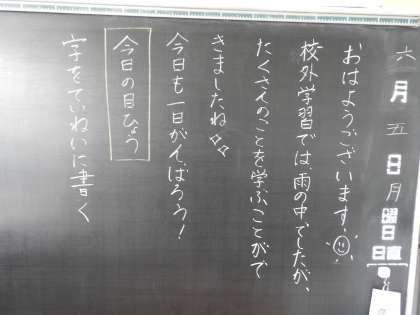 六月五日月曜日
日直
おはようございます。
校外学習では、雨の中でしたが、
たくさんのことを学ぶことがで
きましたね
今日も一日がんばろう!
今日の目ひょう
字をていねいに書く